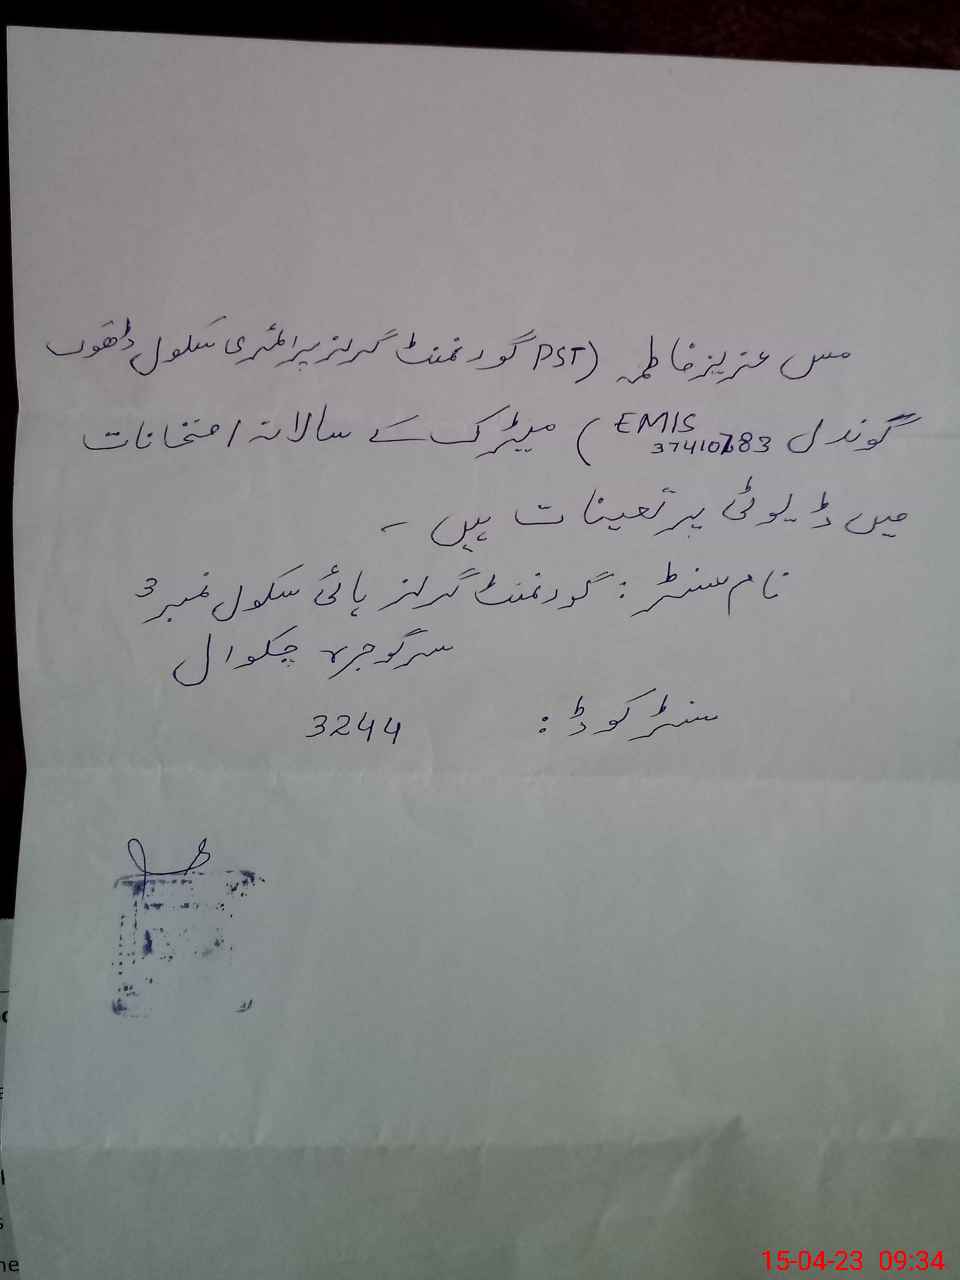 مس عزیز فاطمہ (PST گورنمنٹ گرلز پرائمری سکول ڈھوک
گوندل EMIS 37410783) میٹرک کے سالانہ امتحانات
میں ڈیوٹی پر تعینات ہیں ۔
نام سنٹر : گورنمنٹ گرلز ہائی سکول نمبر 3
سرگوجرہ چکوال
سنٹر کوڈ : 3244
15-04-23 09:34